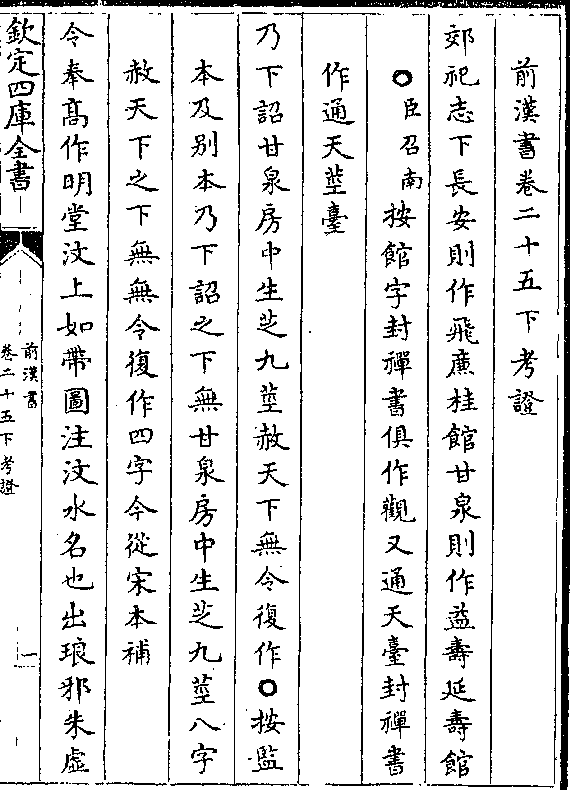 前漢書卷二十五下考證
郊祀志下長安則作飛廉桂館甘泉則作益壽延壽館
○臣召南按館字封禪書俱作觀又通天臺封禪書
作通天莖臺
乃下詔甘泉房中生芝九莖赦天下無令復作○按監
本及别本乃下詔之下無甘泉房中生芝九莖八字
赦天下之下無無令復作四字今從宋本補
令奉高作明堂汶上如帶圖注汶水名也出琅邪朱虛
欽定四庫全書
前漢書
卷二十五下考證
一